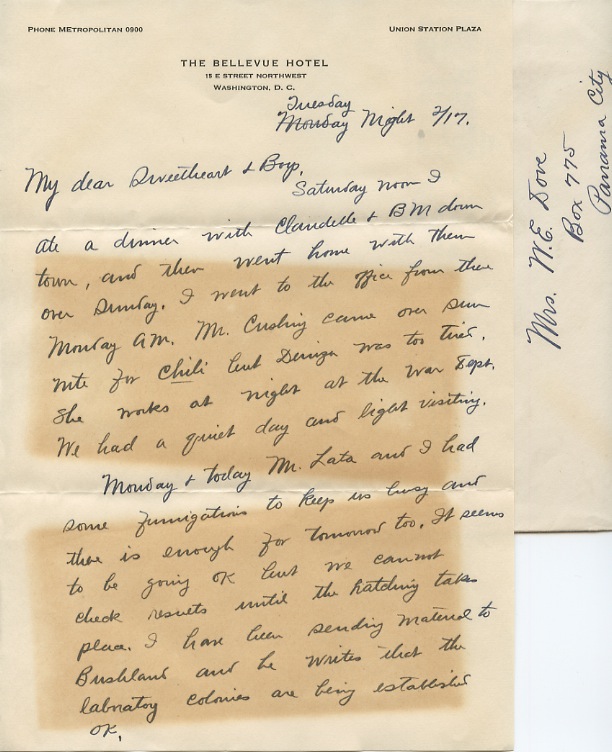 PHONE METROPOLITAN 0900
UNION STATION PLAZA
THE BELLEVUE HOTEL
15 E STREET NORTHWEST
WASHINGTON, D. C.
Tuesday
Monday Night 2/17.
My dear Sweetheart & Boys,
Saturday noon I
ate a dinner with Claudelle & BM down
town, and then went home with them
over Sunday. I went to the office from there
Monday AM. Mr. Cushing came over Sun
nite for Chili but Deniza was too tired.
She works at night at the War Dept.
We had a quiet day and light visiting.
Monday & today Mr. Lata and I had
some fumigations to keep us busy and
there is enough for tomorrow too. It seems
to be going OK but we cannot
check results until the hatching takes
place. I have been sending material to
Bushland and he writes that the
labratory colonies are being established
OK.
Mrs. W.E. Dove
Box 775
Panama City